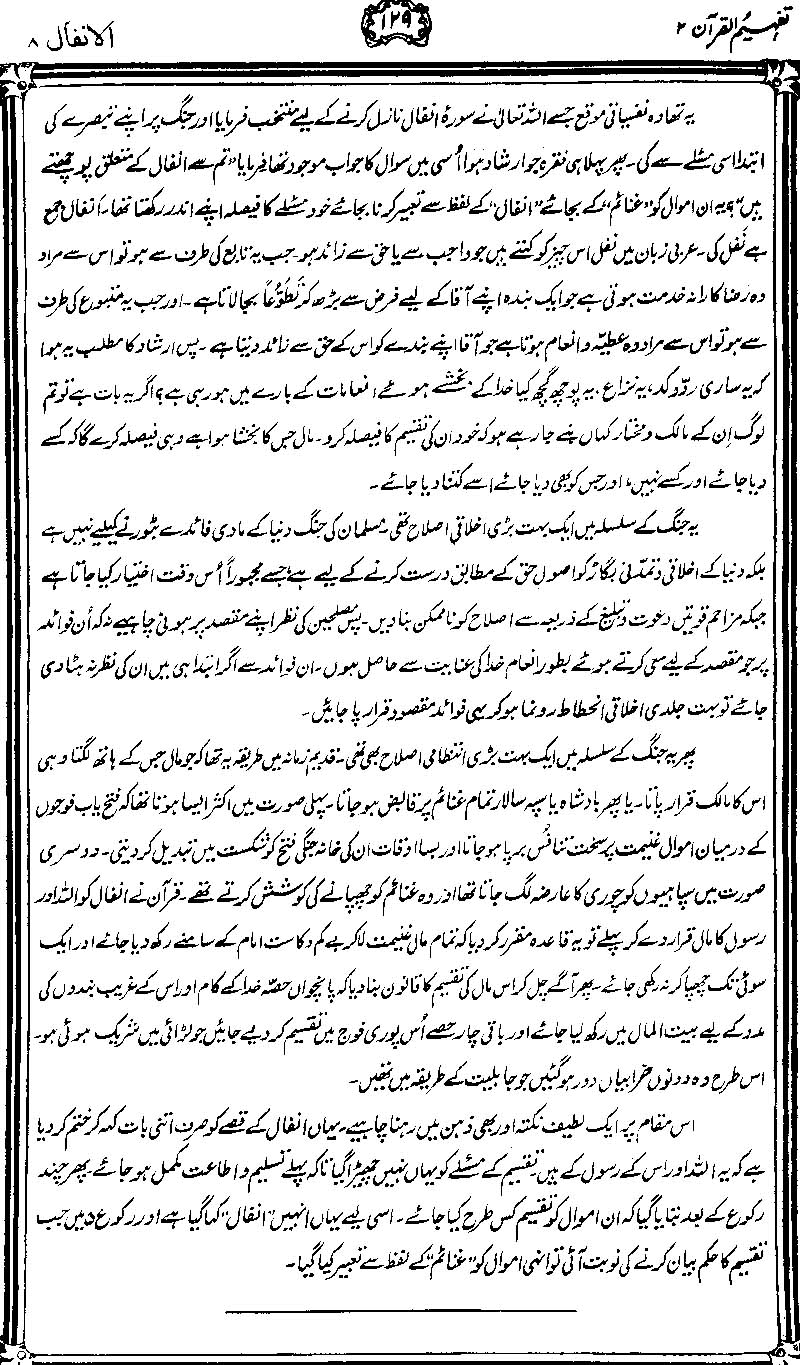 تفہیم القرآن ۲
۱۲۹
الانفال ۸
یہ تھا وہ نفسیاتی موقع جسے اللہ تعالیٰ نے سورۂ انفال نازل کرنے کے لیے منتخب فرمایا اور جنگ پر اپنے تبصرے کی
ابتدا اسی مسئلے سے کی۔ پھر پہلا ہی فقرہ جو ارشاد ہوا اُسی میں سوال کا جواب موجود تھا فرمایا ”تم سے انفال کے متعلق پوچھتے
ہیں“؟ یہ ان اموال کو ”غنائم“ کے بجائے ”انفال“ کے لفظ سے تعبیر کرنا بجائے خود مسئلے کا فیصلہ اپنے اندر رکھتا تھا۔ انفال جمع
ہے نَفل کی۔ عربی زبان میں نفل اس چیز کو کہتے ہیں جو واجب سے یا حق سے زائد ہو۔ جب یہ تابع کی طرف سے ہو تو اس سے مراد
وہ رضاکارانہ خدمت ہوتی ہے جو ایک بندہ اپنے آقا کے لیے فرض سے بڑھ کر تَطَوُّعاً بجا لاتا ہے۔ اور جب یہ متبوع کی طرف
سے ہو تو اس سے مراد وہ عطیّہ و انعام ہوتا ہے جو آقا اپنے بندے کو اس کے حق سے زائد دیتا ہے۔ پس ارشاد کا مطلب یہ ہوا
کہ یہ ساری ردّ و کد، یہ نزاع، یہ پوچھ گچھ کیا خدا کے بخشے ہوئے انعامات کے بارے میں ہو رہی ہے؟ اگر یہ بات ہے تو تم
لوگ اِن کے مالک و مختار کہاں بنے جا رہے ہو کہ خود ان کی تقسیم کا فیصلہ کرو۔ مال جس کا بخشا ہوا ہے وہی فیصلہ کرے گا کہ کسے
دیا جائے اور کسے نہیں، اور جس کو بھی دیا جائے اسے کتنا دیا جائے۔
یہ جنگ کے سلسلہ میں ایک بہت بڑی اخلاقی اصلاح تھی۔ مسلمان کی جنگ دنیا کے مادی فائدے بٹورنے کیلیے نہیں ہے
بلکہ دنیا کے اخلاقی و تمدنی بگاڑ کو اصولِ حق کے مطابق درست کرنے کے لیے ہے، جسے مجبوراً اُس وقت اختیار کیا جاتا ہے
جبکہ مزاحم قوتیں دعوت و تبلیغ کے ذریعہ سے اصلاح کو ناممکن بنا دیں۔ پس مصلحین کی نظر اپنے مقصد پر ہونی چاہیے نہ کہ اُن فوائد
پر جو مقصد کے لیے سعی کرتے ہوئے بطور انعام خدا کی عنایت سے حاصل ہوں۔ ان فوائد سے اگر ابتدا ہی میں ان کی نظر نہ ہٹا دی
جائے تو بہت جلدی اخلاقی انحطاط رونما ہو کر یہی فوائد مقصود قرار پا جائیں۔
پھر یہ جنگ کے سلسلہ میں ایک بہت بڑی انتظامی اصلاح بھی تھی۔ قدیم زمانہ میں طریقہ یہ تھا کہ جو مال جس کے ہاتھ لگتا وہی
اس کا مالک قرار پاتا۔ یا پھر بادشاہ یا سپہ سالار تمام غنائم پر قابض ہو جاتا۔ پہلی صورت میں اکثر ایسا ہوتا تھا کہ فتح یاب فوجوں
کے درمیان اموالِ غنیمت پر سخت تنافُس برپا ہو جاتا اور بسا اوقات ان کی خانہ جنگی فتح کو شکست میں تبدیل کر دیتی۔ دوسری
صورت میں سپاہیوں کو چوری کا عارضہ لگ جاتا تھا اور وہ غنائم کو چھپانے کی کوشش کرتے تھے۔ قرآن نے انفال کو اللہ اور
رسول کا مال قرار دے کر پہلے تو یہ قاعدہ مقرر کر دیا کہ تمام مالِ غنیمت لا کر بے کم و کاست امام کے سامنے رکھ دیا جائے اور ایک
سوئی تک چھپا کر نہ رکھی جائے۔ پھر آگے چل کر اس مال کی تقسیم کا قانون بنا دیا کہ پانچواں حصّہ خدا کے کام اور اس کے غریب بندوں کی
مدد کے لیے بیت المال میں رکھ لیا جائے اور باقی چار حصے اُس پوری فوج میں تقسیم کر دیے جائیں جو لڑائی میں شریک ہوئی ہو۔
اس طرح وہ دونوں خرابیاں دور ہو گئیں جو جاہلیت کے طریقہ میں تھیں۔
اس مقام پر ایک لطیف نکتہ اور بھی ذہن میں رہنا چاہیے۔ یہاں انفال کے قصے کو صرف اتنی بات کہہ کر ختم کر دیا
ہے کہ یہ اللہ اور اس کے رسول کے ہیں۔ تقسیم کے مسئلے کو یہاں نہیں چھیڑا گیا تاکہ پہلے تسلیم و اطاعت مکمل ہو جائے۔ پھر چند
رکوع کے بعد بتایا گیا کہ ان اموال کو تقسیم کس طرح کیا جائے۔ اسی لیے یہاں انہیں ”انفال“ کہا گیا ہے اور رکوع ۵ میں جب
تقسیم کا حکم بیان کرنے کی نوبت آئی تو انہی اموال کو ”غنائم“ کے لفظ سے تعبیر کیا گیا۔